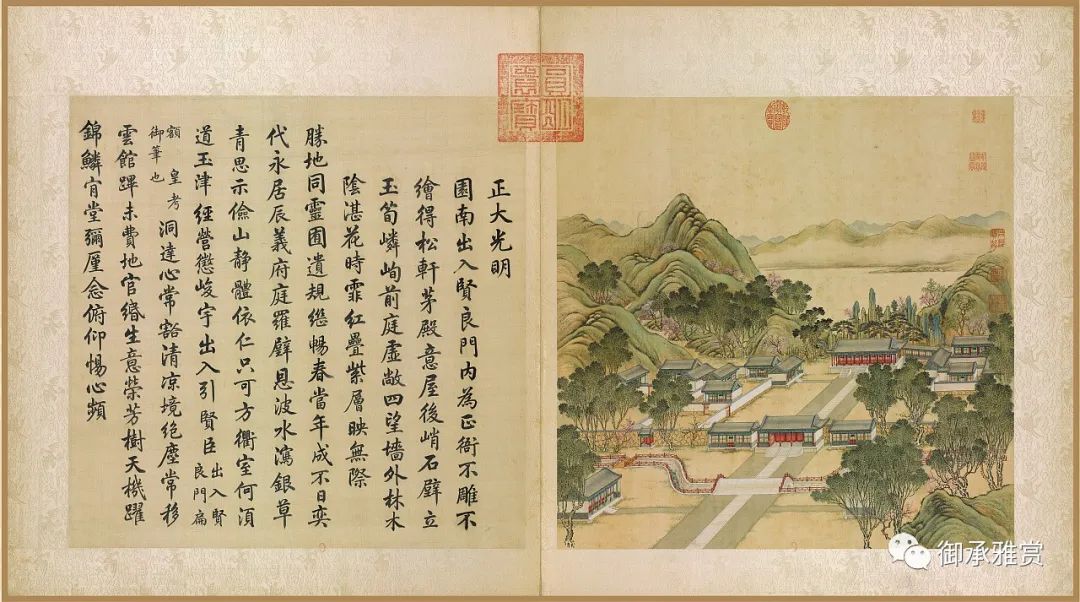 正大光明
園南出入賢良門內為正衙不雕不
繪得松軒茅殿意屋後峭石壁立
玉筍嶙峋前庭虛敞四望墻外林木
陰湛花時霏紅疊紫層映無際
勝地同靈囿遺規継暢春當年成不日奕
代永居辰義府庭羅璧恩波水瀉銀草
青思示儉山靜體依仁只可方衢室何須
道玉津經營懲峻宇出入引賢臣出入賢良門扁
額皇考御筆也洞達心常豁清凉境絕塵常移
雲館蹕未費地官緡生意榮芳樹天機躍
錦鱗肯堂彌厪念俯仰惕心頻
御承雅赏